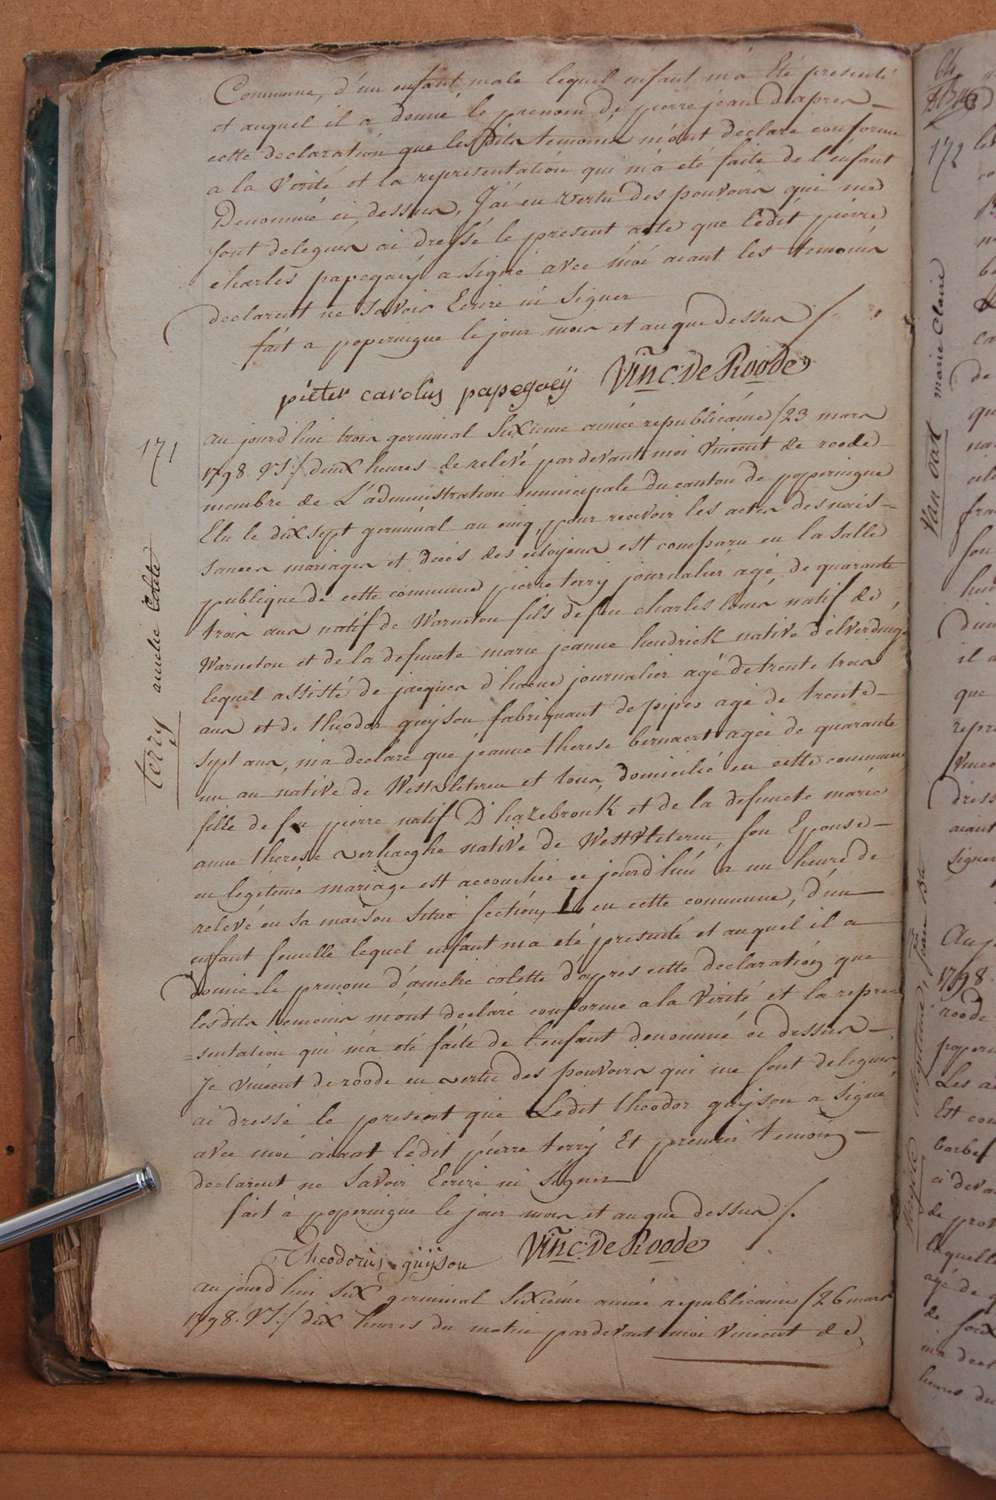 Commune, d'un enfant male lequel enfant m'a été presenté
et auquel il a donné le prenom de pierre jean d'apres
cette declaration que les dits temoins m'ont declaré conforme
a la verité et la representation qui m'a été faite de l'enfant
Denommé ci dessus, J'ai en vertu des pouvoirs qui me
sont delegués ai dressé le present acte que ledit pierre
charles papegaeÿ a signé avec moi aiant les temoins
declarent ne savoir Ecrire ni signer
fait a poperingue le jour mois et an que dessus /.
pieter carolus papegaeÿ Vinc: De Roode
171
au jourd'hui trois germinal sixieme année republicaine /23 mars
1798. VS:/ deux heures de relevé par devant moi vincent de roode
membre de L'administration municipale du canton de poperingue
Elu le dix sept germinal an cinq, pour recevoir les actes des nais=
sances mariages et decés des citoyens est comparu en la salle
publique de cette commune pierre terry journalier agé de quarante
trois ans natif de Warneton fils de feu charles louis natif de
Warneton et de la defuncte marie jeanne hendrick native d'elverdinge
lequel assisté de jacques d'haene journalier agé de trente trois
ans et de theodor guyson fabriquant de pipes agé de trente
sept ans, m'a declaré que jeanne therese bernaert agée de quarante
un an native de Westvleteren et tous domicilié en cette commune
fille de feu pierre natif D'hazebrouk et de la defuncte marie
anne therese verhaeghe native de Westvleteren, son Epouse
en legitime mariage est accouchée ce jourd'hui a un heure de
relevé en sa maison situé section, L. en cette commune, d'un
enfant femelle lequel enfant m'a été presenté et auquel il a
donné le prenom d'amelie colette d'apres cette declaration que
les dits temoins m'ont declaré conforme a la verité et la repre=
=sentation qui m'a été faite de l'enfant denommé ci dessus
Je vincent de roode en vertu des pouvoirs qui me sont delegués
ai dressé le present que Ledit theodor guijson a signé
avec moi aiant ledit pierre terrÿ Et premier temoin
declarent ne savoir Ecrire ni signer
fait à poperingue le jour mois et an que dessus /.
Theodorus guijson Vinc: De Roode
aujourd'hui six germinal sixieme année republicaine /26 mars
1798. VS:/ dix heures du matin par devant moi vincent de
terry amelie Colette
172
Van Oat marie Claire